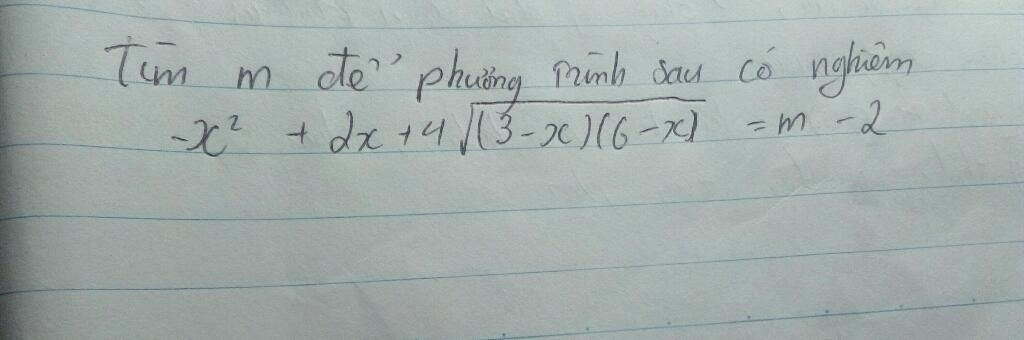 Tìm m để phương trình sau có nghiệm
-x² + 2x + 4√((3-x)(6-x)) = m - 2